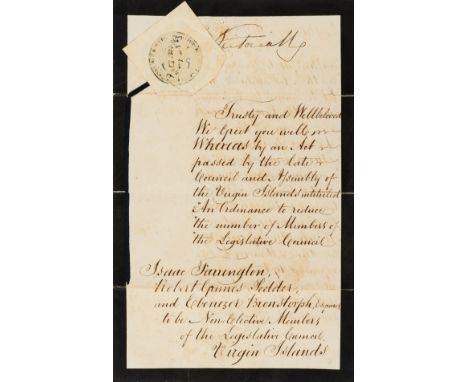 Victoria R
Trusty and Wellbeloved
We Greet you well
Whereas by an Act
passed by the late
Council and Assembly of
the Virgin Islands intituled
"An Ordinance to reduce
the number of Members of
the Legislative Council
Isaac Farrington,
Robert Grimes Pedder,
and Ebenezer Bronstorph, Esquires
to be Non Elective Members
of the Legislative Council,
Virgin Islands